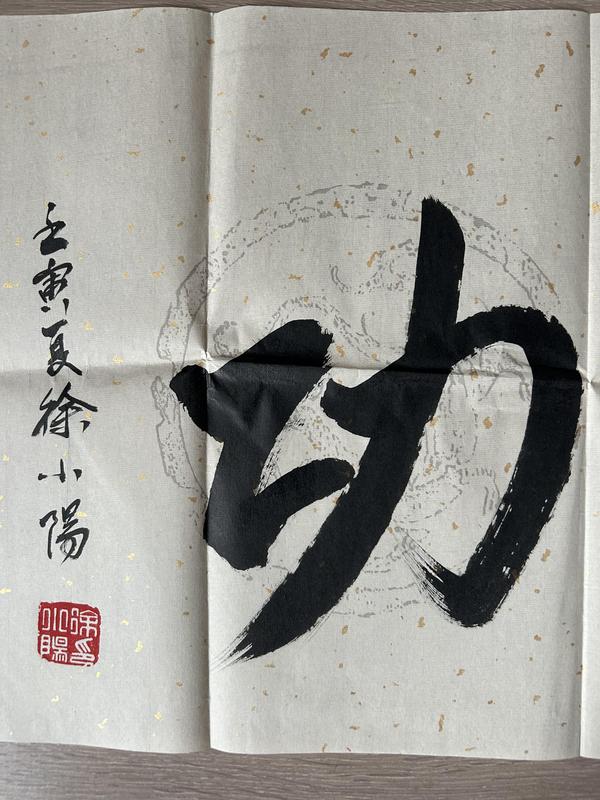 功
壬寅夏徐小陽
徐小陽印